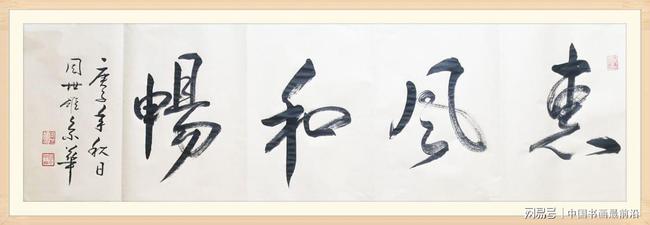 惠风和暢
庚子年秋日
周世雄京華
网易号 | 中国书画最前沿